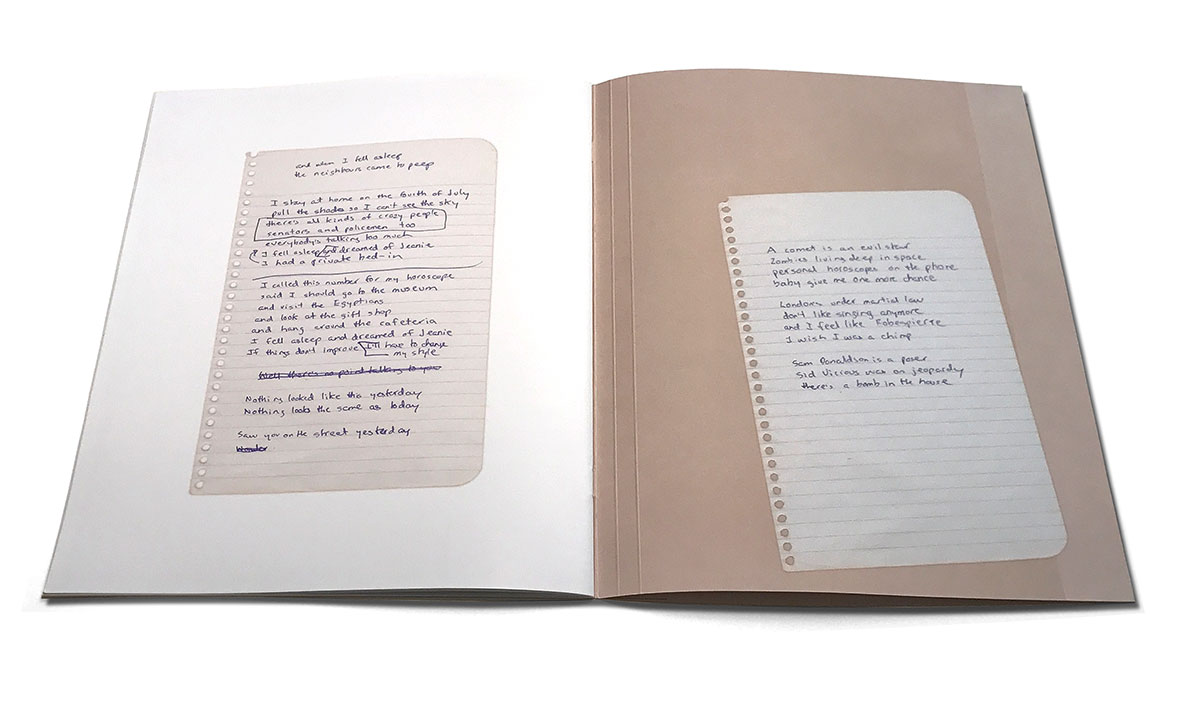 and when I fell asleep
the neighbours came to peep
I stay at home on the Fourth of July
pull the shades so I can't see the sky
there's all kinds of crazy people
senators and policemen too
everybody's talking too much
I fell asleep and dreamed of Jeanie
I had a private bed-in
I called this number for my horoscope
said I should go to the museum
and visit the Egyptians
and look at the gift shop
and hang around the cafeteria
I fell asleep and dreamed of Jeanie
If things don't improve I'll have to change
my style
Well there's no point talking to you
Nothing looked like this yesterday
Nothing looks the same as today
Saw you on the street yesterday
Wonder
A comet is an evil star
Zombies living deep in space
personal horoscopes on the phone
baby give me one more chance
Londons under martial law
don't like singing anymore
and I feel like Robespierre
I wish I was a chimp
Sam Donaldson is a poser
Sid Vicious was on jeopardy
there's a bomb in the house